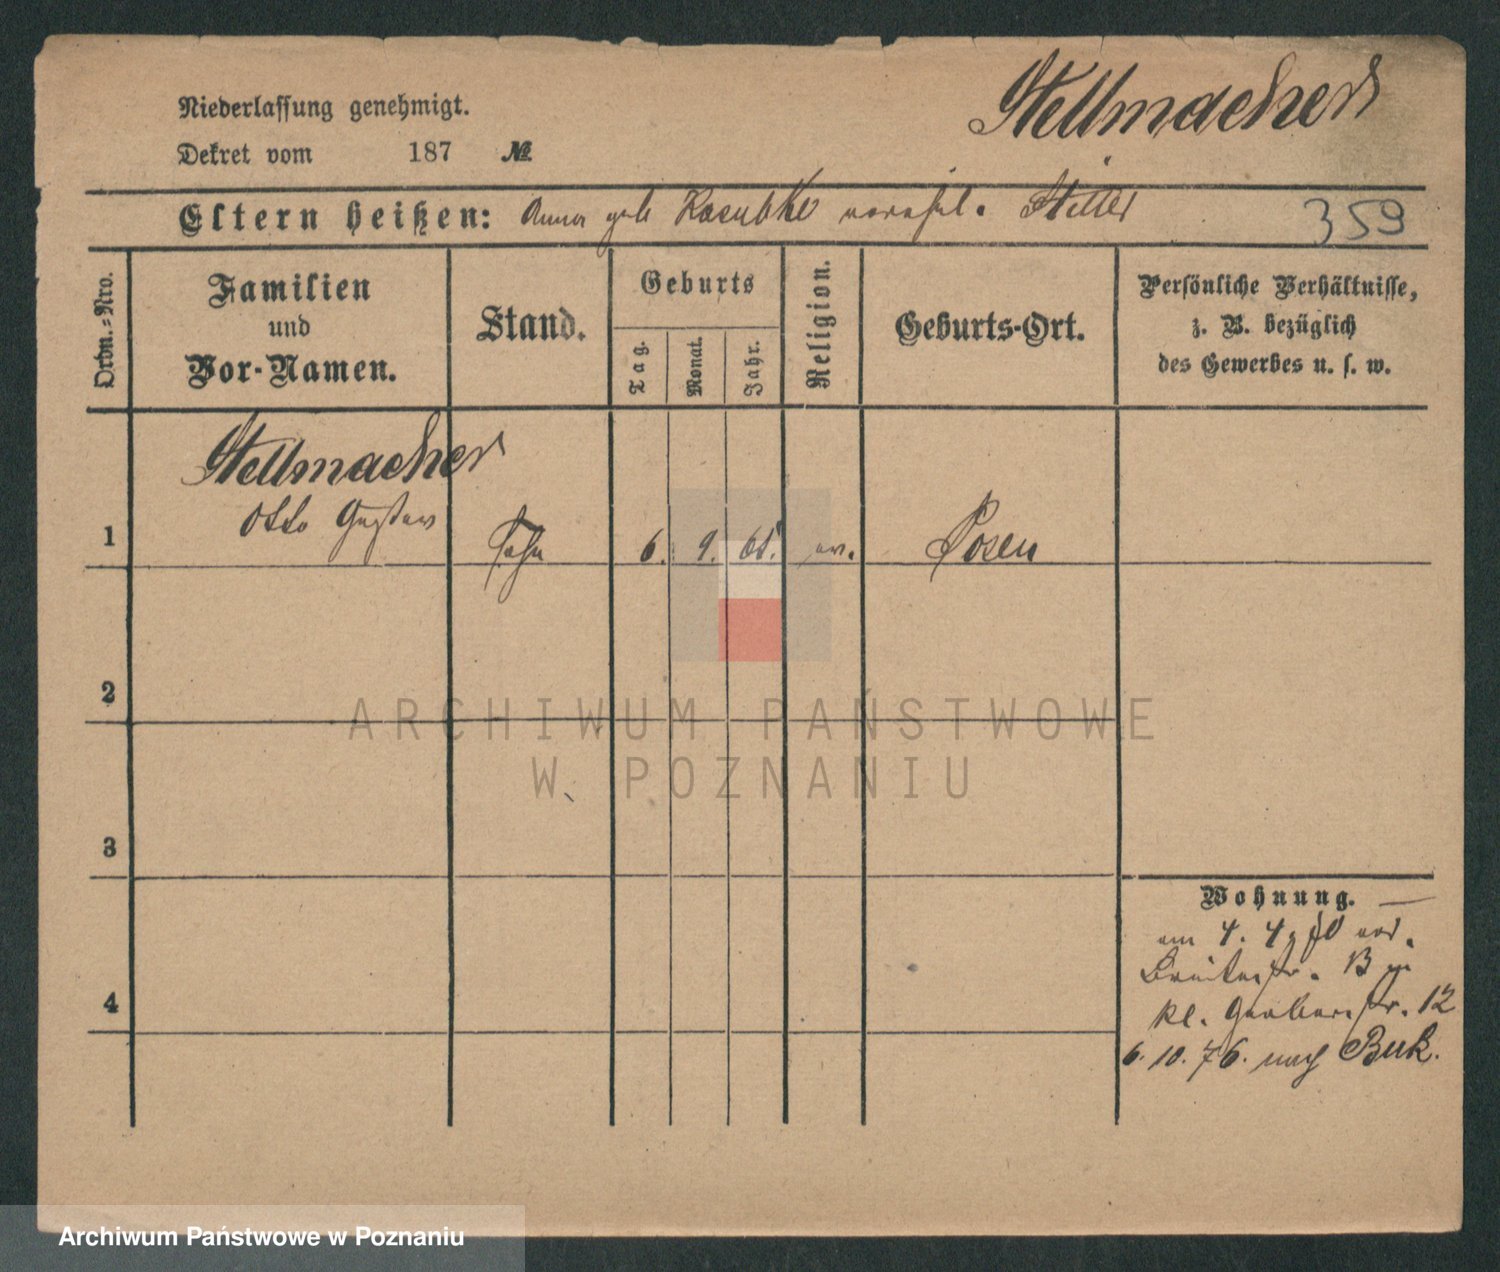 Stellmacher
Niederlassung genehmigt.
Dekret vom 187 №
Eltern heißen: Anna geb verehel. Stiller
359
Ordn.-Nro.
Familien
und
Vor-Namen.
Stand.
Geburts
Tag.
Monat.
Jahr.
Religion.
Geburts-Ort.
Persönliche Verhältnisse,
z. B. bezüglich
des Gewerbes u. s. w.
Stellmacher
Otto Gustav
1 Sohn 6. 9. ev. Posen
2
ARCHIWUM PAŃSTWOWE
W POZNANIU
3
4
Wohnung.
am 4. 4
Breitestr.
kl. Gerberstr. 12
6. 10. 76. nach Buk.
Archiwum Państwowe w Poznaniu